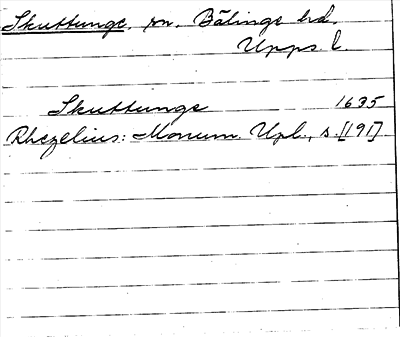 Skuttunge, sn. Bälinge hd.
Upps l.
Skuttunge 1635
Rhezelius: Monum. Upl., s. [191]